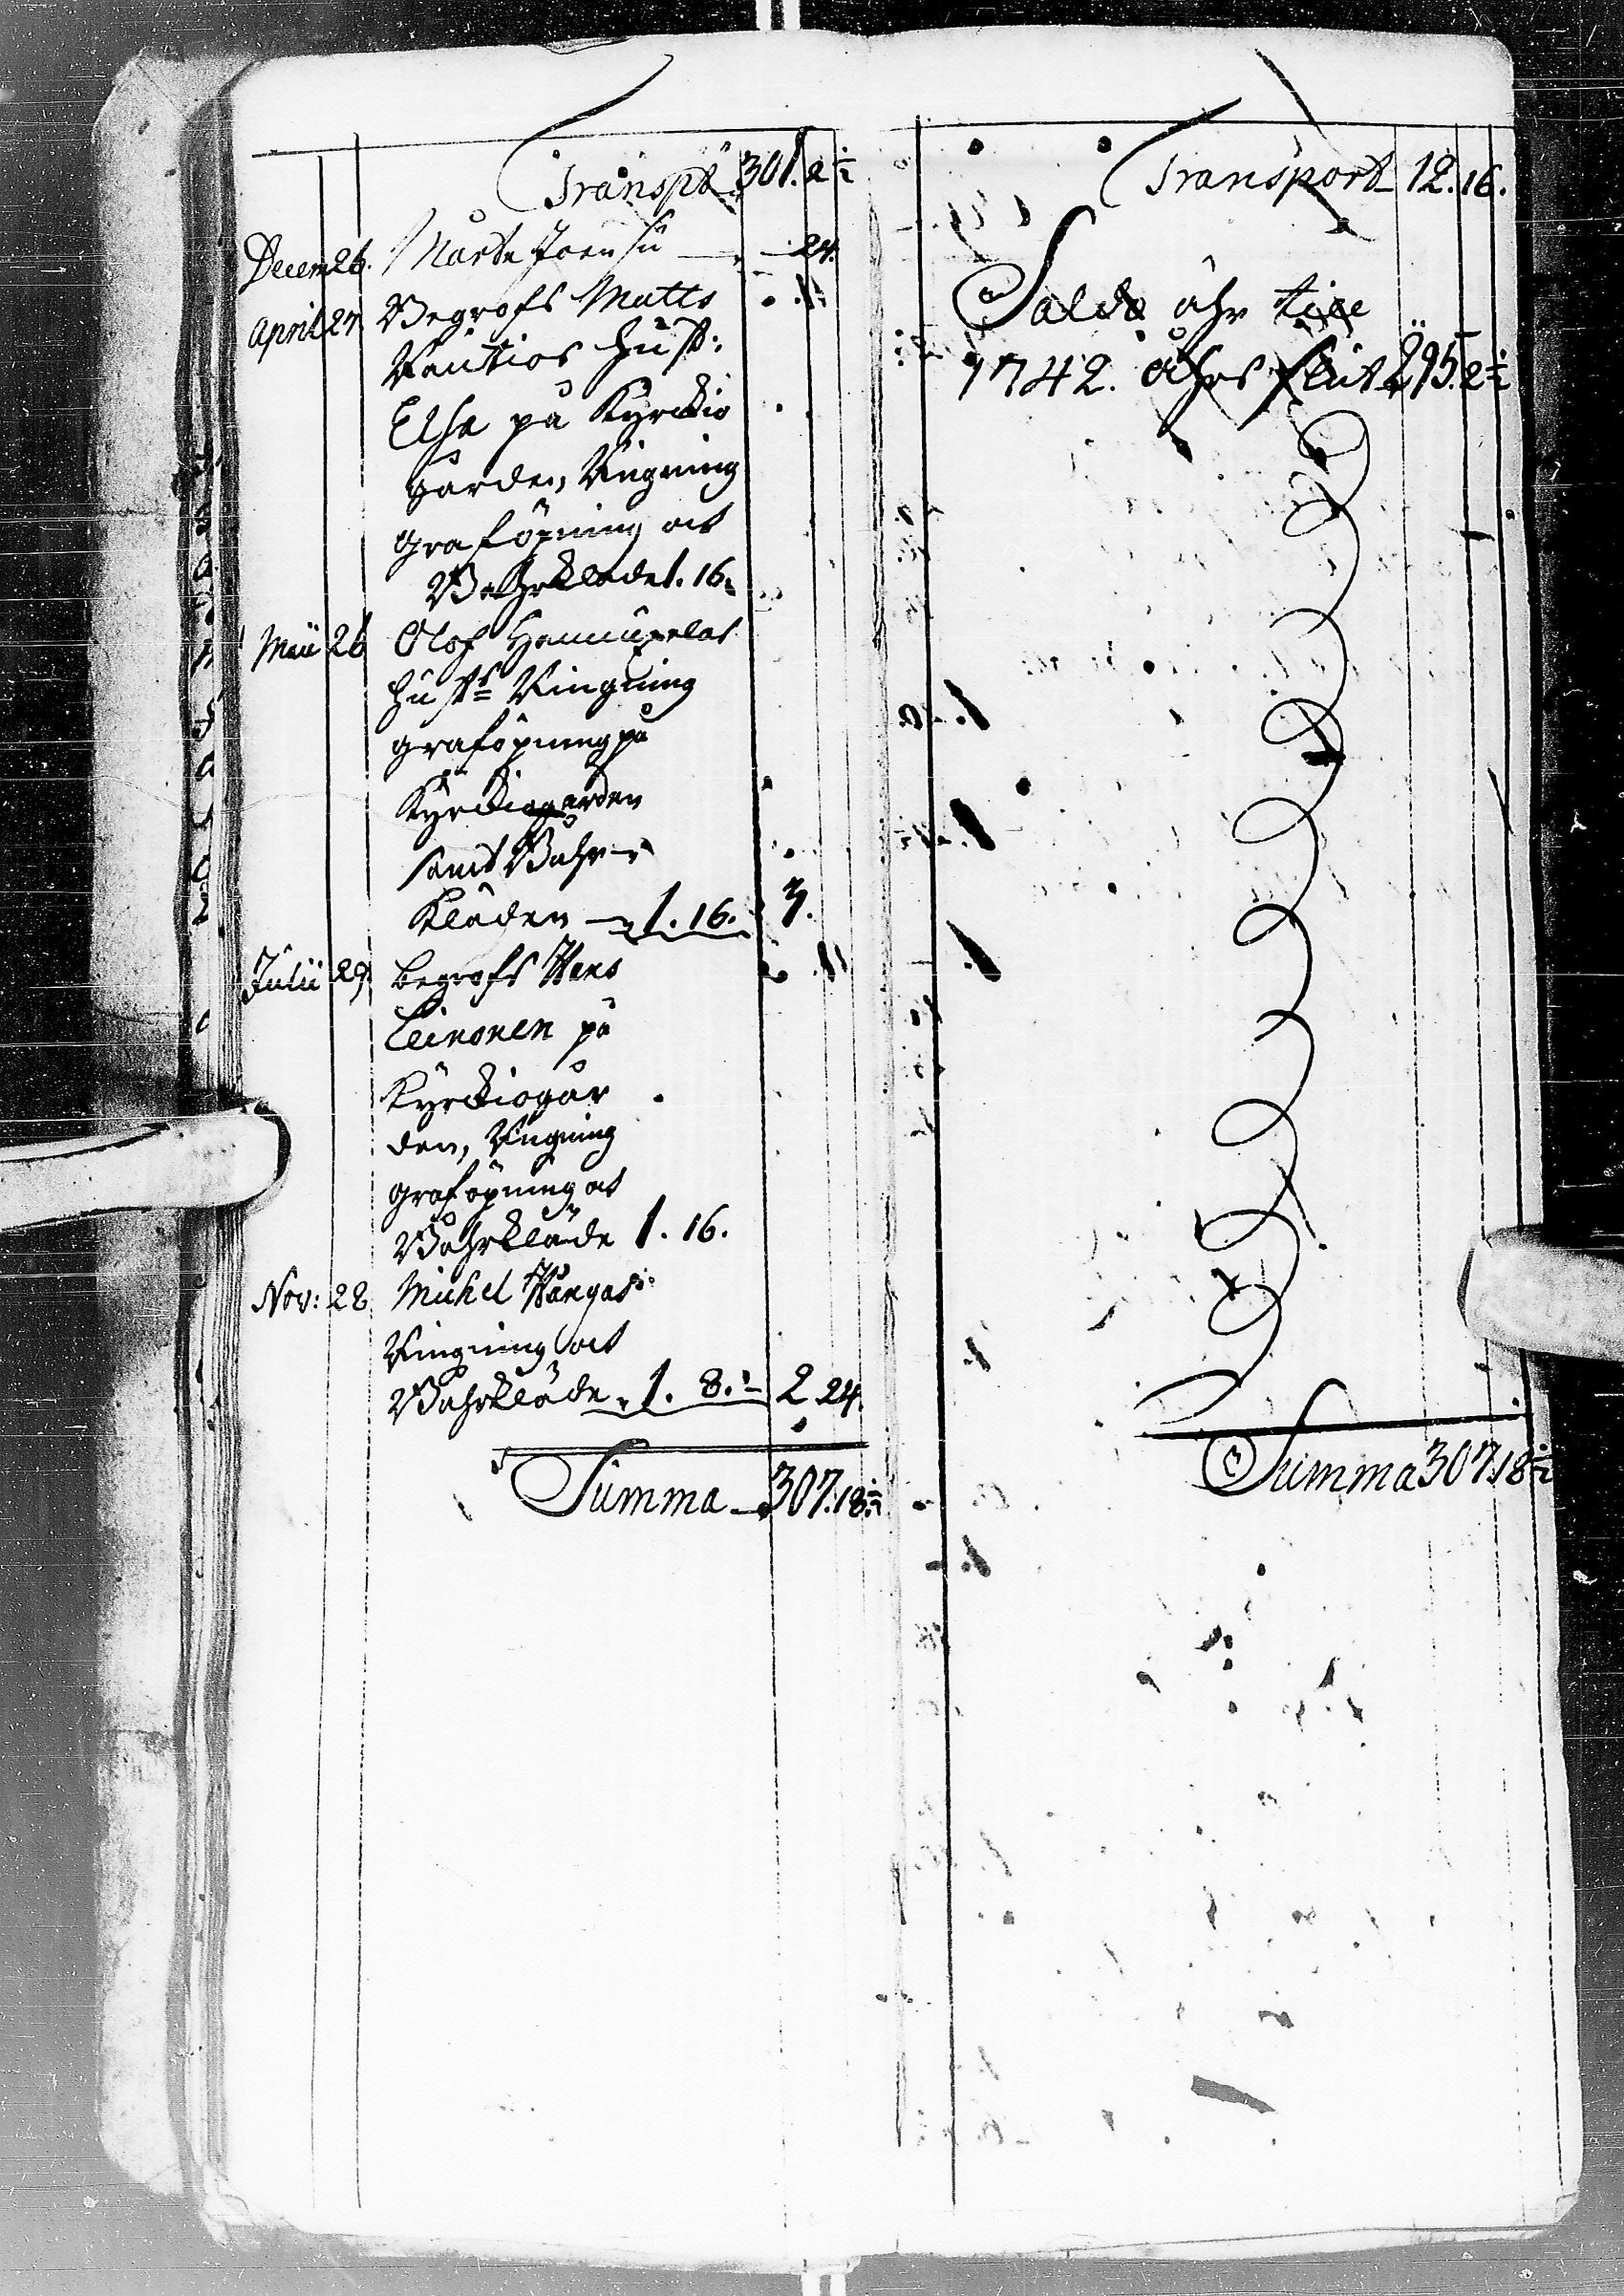 Transpt 301. 2 ½
Decem 26. Mårte Joensu — 24.
April 27 Begrofs Matts
Vautios hust:
Elsa på Kyrckio
gården, Ringning
graföpning och
Bahrkläde 1. 16.
Maii 26 Olof
hustr Ringning
graföpning på
Kyrckiogården
samt Bahr
kläden — 1. 16. 3.
Julii 29. begrofs Hans
Leinonen på
Kyrckiogår
den, Ringning
graföpning och
Bahrkläde 1. 16.
Nov: 28 Michel Kangas
Ringning och
Bahrkläde 1. 8. 2 24.
Summa 307. 18 ½
Transport 12. 16.
Saldo åhr till
1742. åhrs slut 295. 2 ½
Summa 307. 18 ½